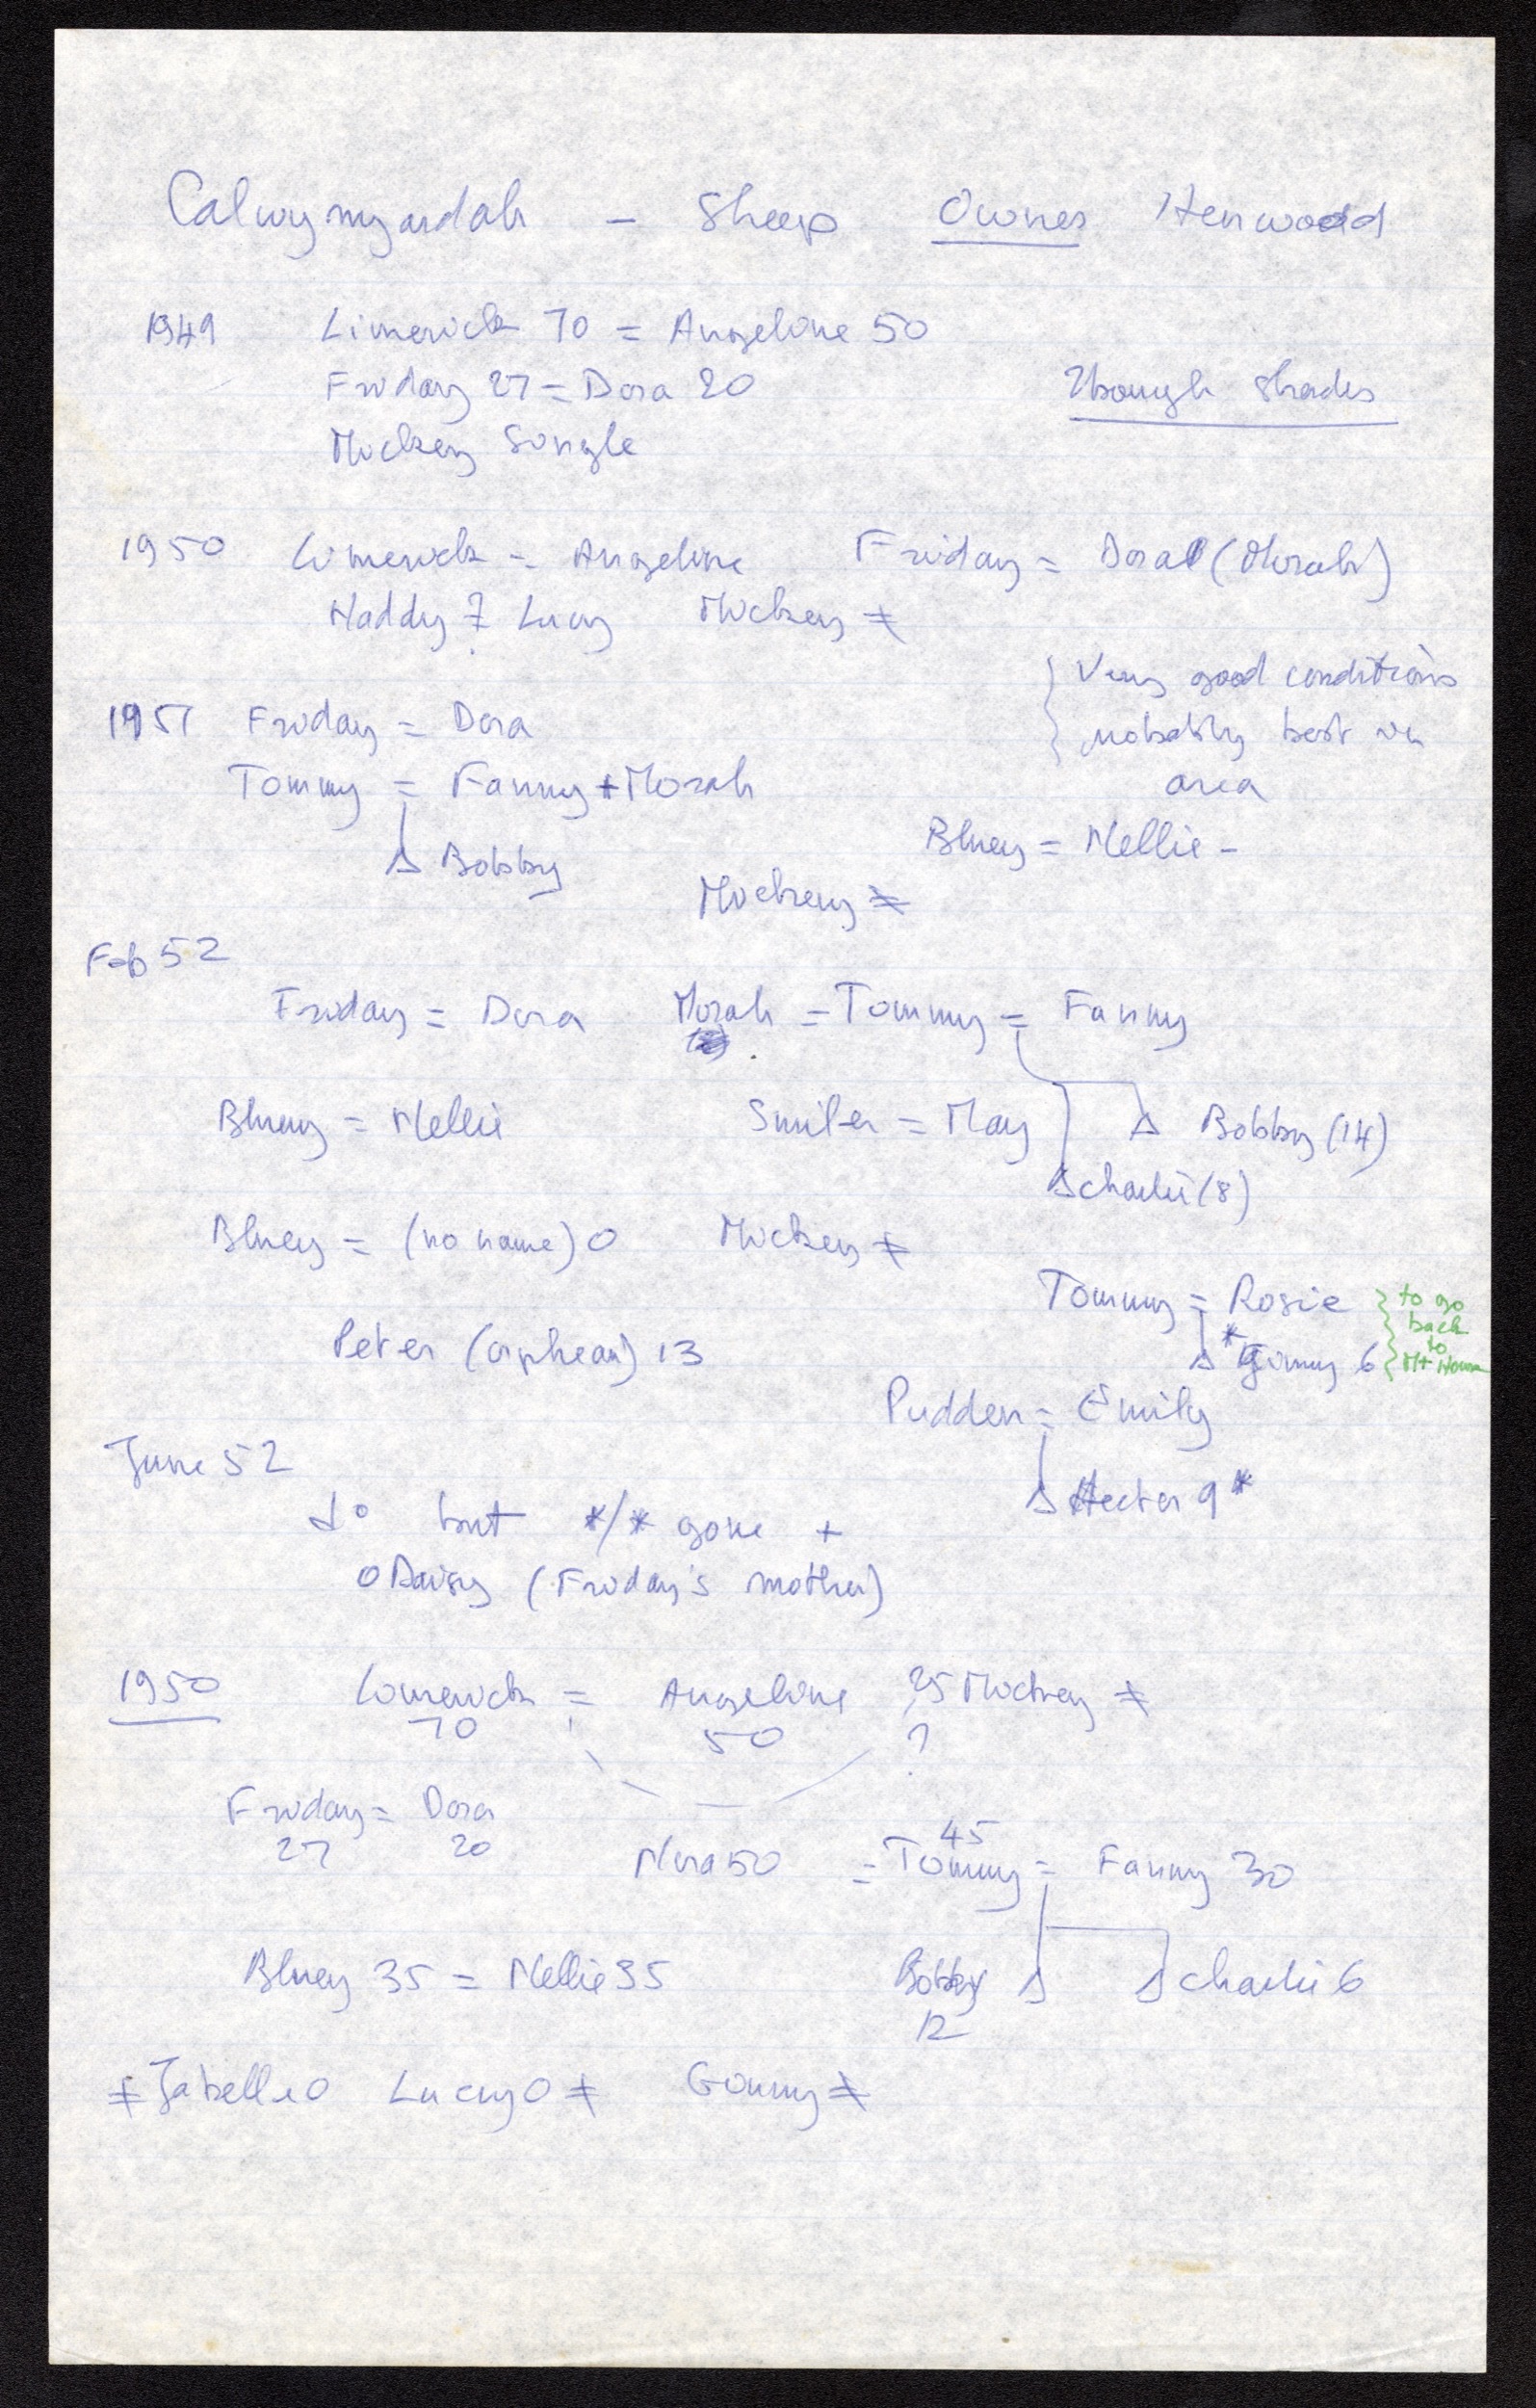 Calwynyardah - Sheep Owner Henwood
1949 Limerick 70 = Angeline 50
Friday 27 = Dora 20
Bough Shades
Mickey Single
1950 Limerick = Angeline Friday = Dora (Norah)
Maddy ≠ Lucy Mickey ≠
{ Very good conditions
probably best in
area
1951 Friday = Dora
Tommy = Fanny + Norah
Δ Bobby
Bluey = Nellie -
Mickey ≠
Feb 52
Friday = Dora Norah = Tommy = Fanny
Bluey = Nellie Smiler = May Δ Bobby (14)
Δ Charlie (8)
Bluey = (no name) O Mickey ≠
Tommy = Rosie } to go
back
to
Mt House
Δ * 6
Peter (orphean) 13
Pudden = Emily
Δ Hector 9 *
June 52
do but */* gone +
O Daisy (Friday's mother)
1950 Limerick = Angeline 25 Mickey ≠
70 50 ?
Friday = Dora
27 20
45
Nora 50 = Tommy = Fanny 30
Bluey 35 = Nellie 35 Bobby Δ Δ Charlie 6
12
≠ O Lucy O ≠ Ginny ≠